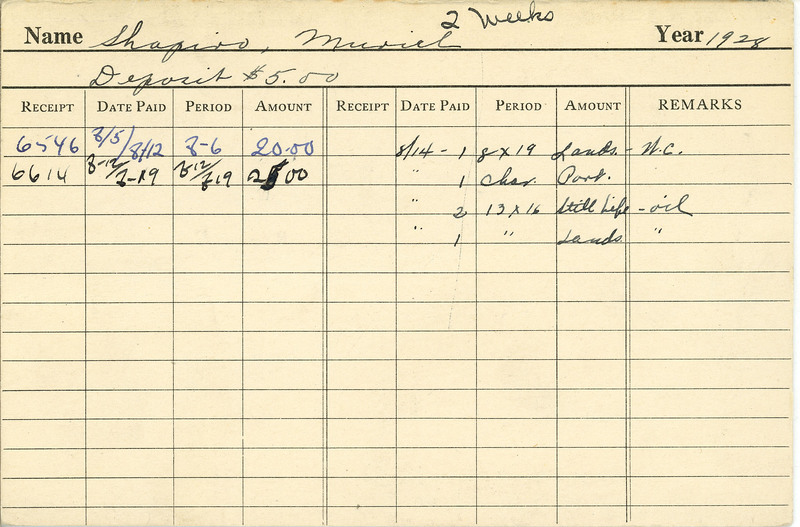 2 Weeks
Name Shapiro, Muriel Year 1928
Deposit $5.00
RECEIPT DATE PAID PERIOD AMOUNT RECEIPT DATE PAID PERIOD AMOUNT REMARKS
6546 8/5/8/12 8-6 20.00 8/14 - 1 8 x 19 Lands. - W.C.
6614 8-12/8-19 8-12/8-19 00 " 1 Char. Port.
" 2 13 x 16 Still Life - oil
" 1 " Lands. "